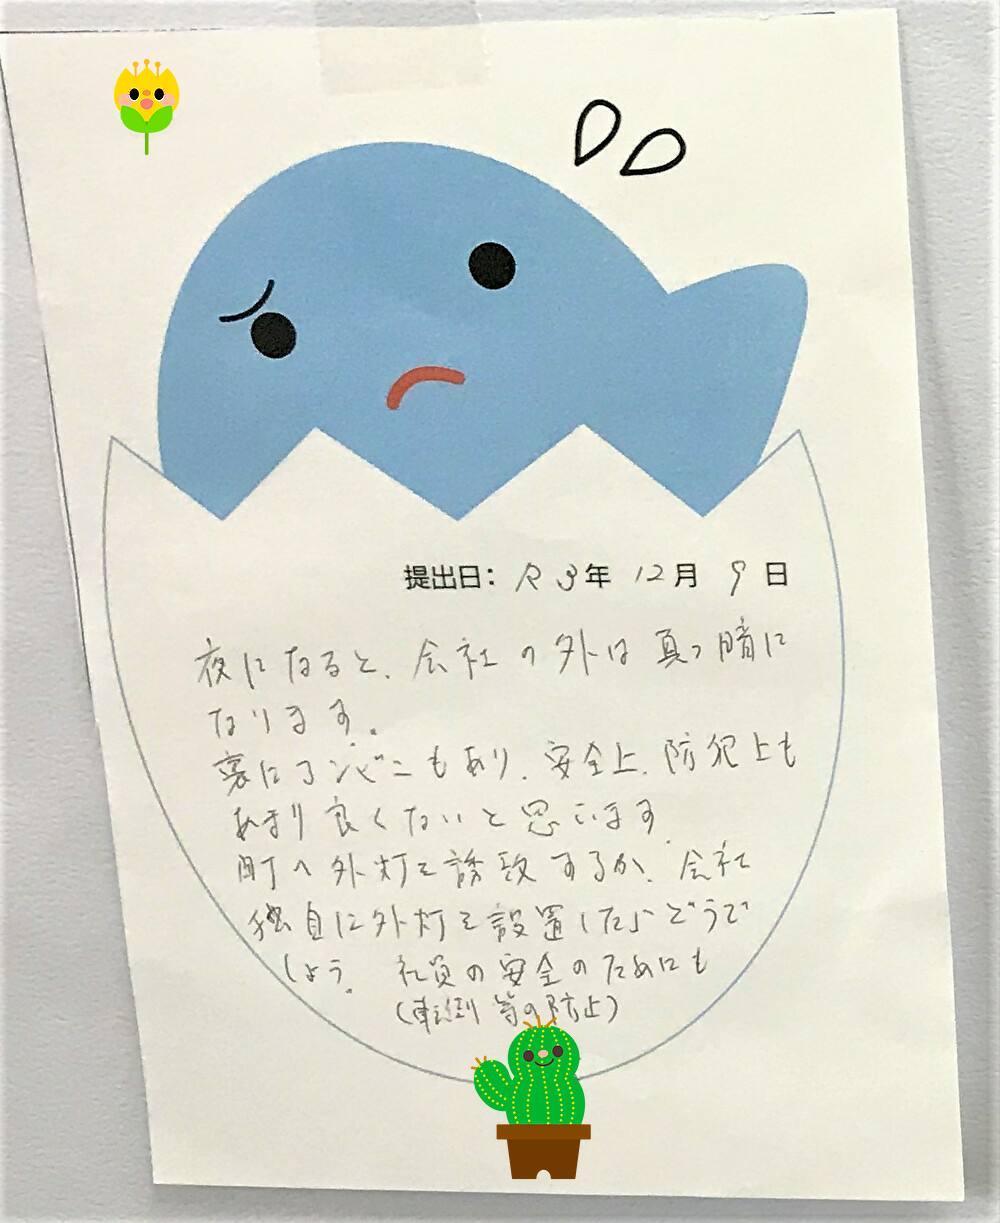 提出日: R3年 12月 9日
夜になると、会社の外は真っ暗に
なります。
裏にコンビニもあり、安全上、防犯上も
あまり良くないと思います。
町へ外灯を誘致するか、会社
独自に外灯を設置したらどうで
しょう。 社員の安全のためにも
(転倒等の防止)